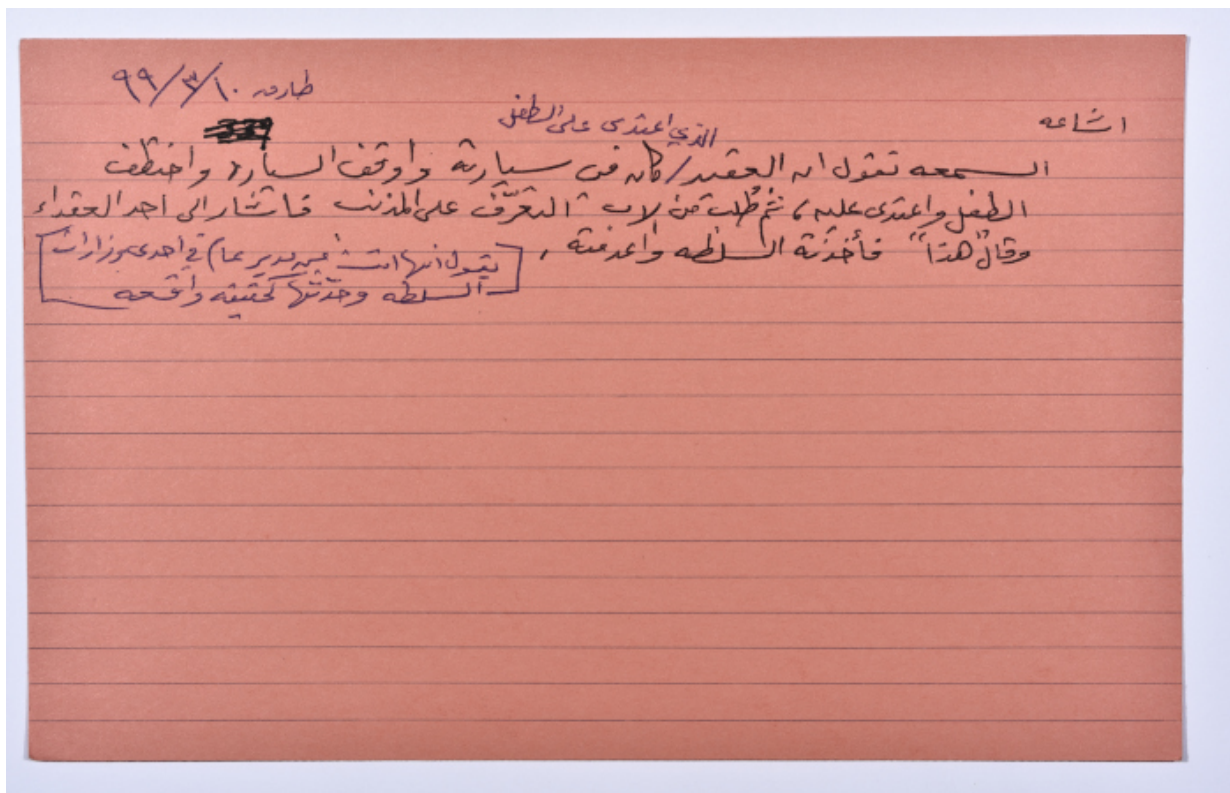 طارق ٩٩/٣/١٠
اشاعه
الذي اعتدى على الطفل
السمعه تقول ان العقيد / كان في سيارته وأوقف السيارة واختطف
الطفل واعتدى عليه، ثم طُلب من الاب التعرّف على المذنب فاشار الى احد العقداء
وقال "هذا" فأخذته السلطه واعدمته،
يقول انها اتت من مدير عام في احدى وزارات
السلطه وحدّثها كحقيقه واقعه